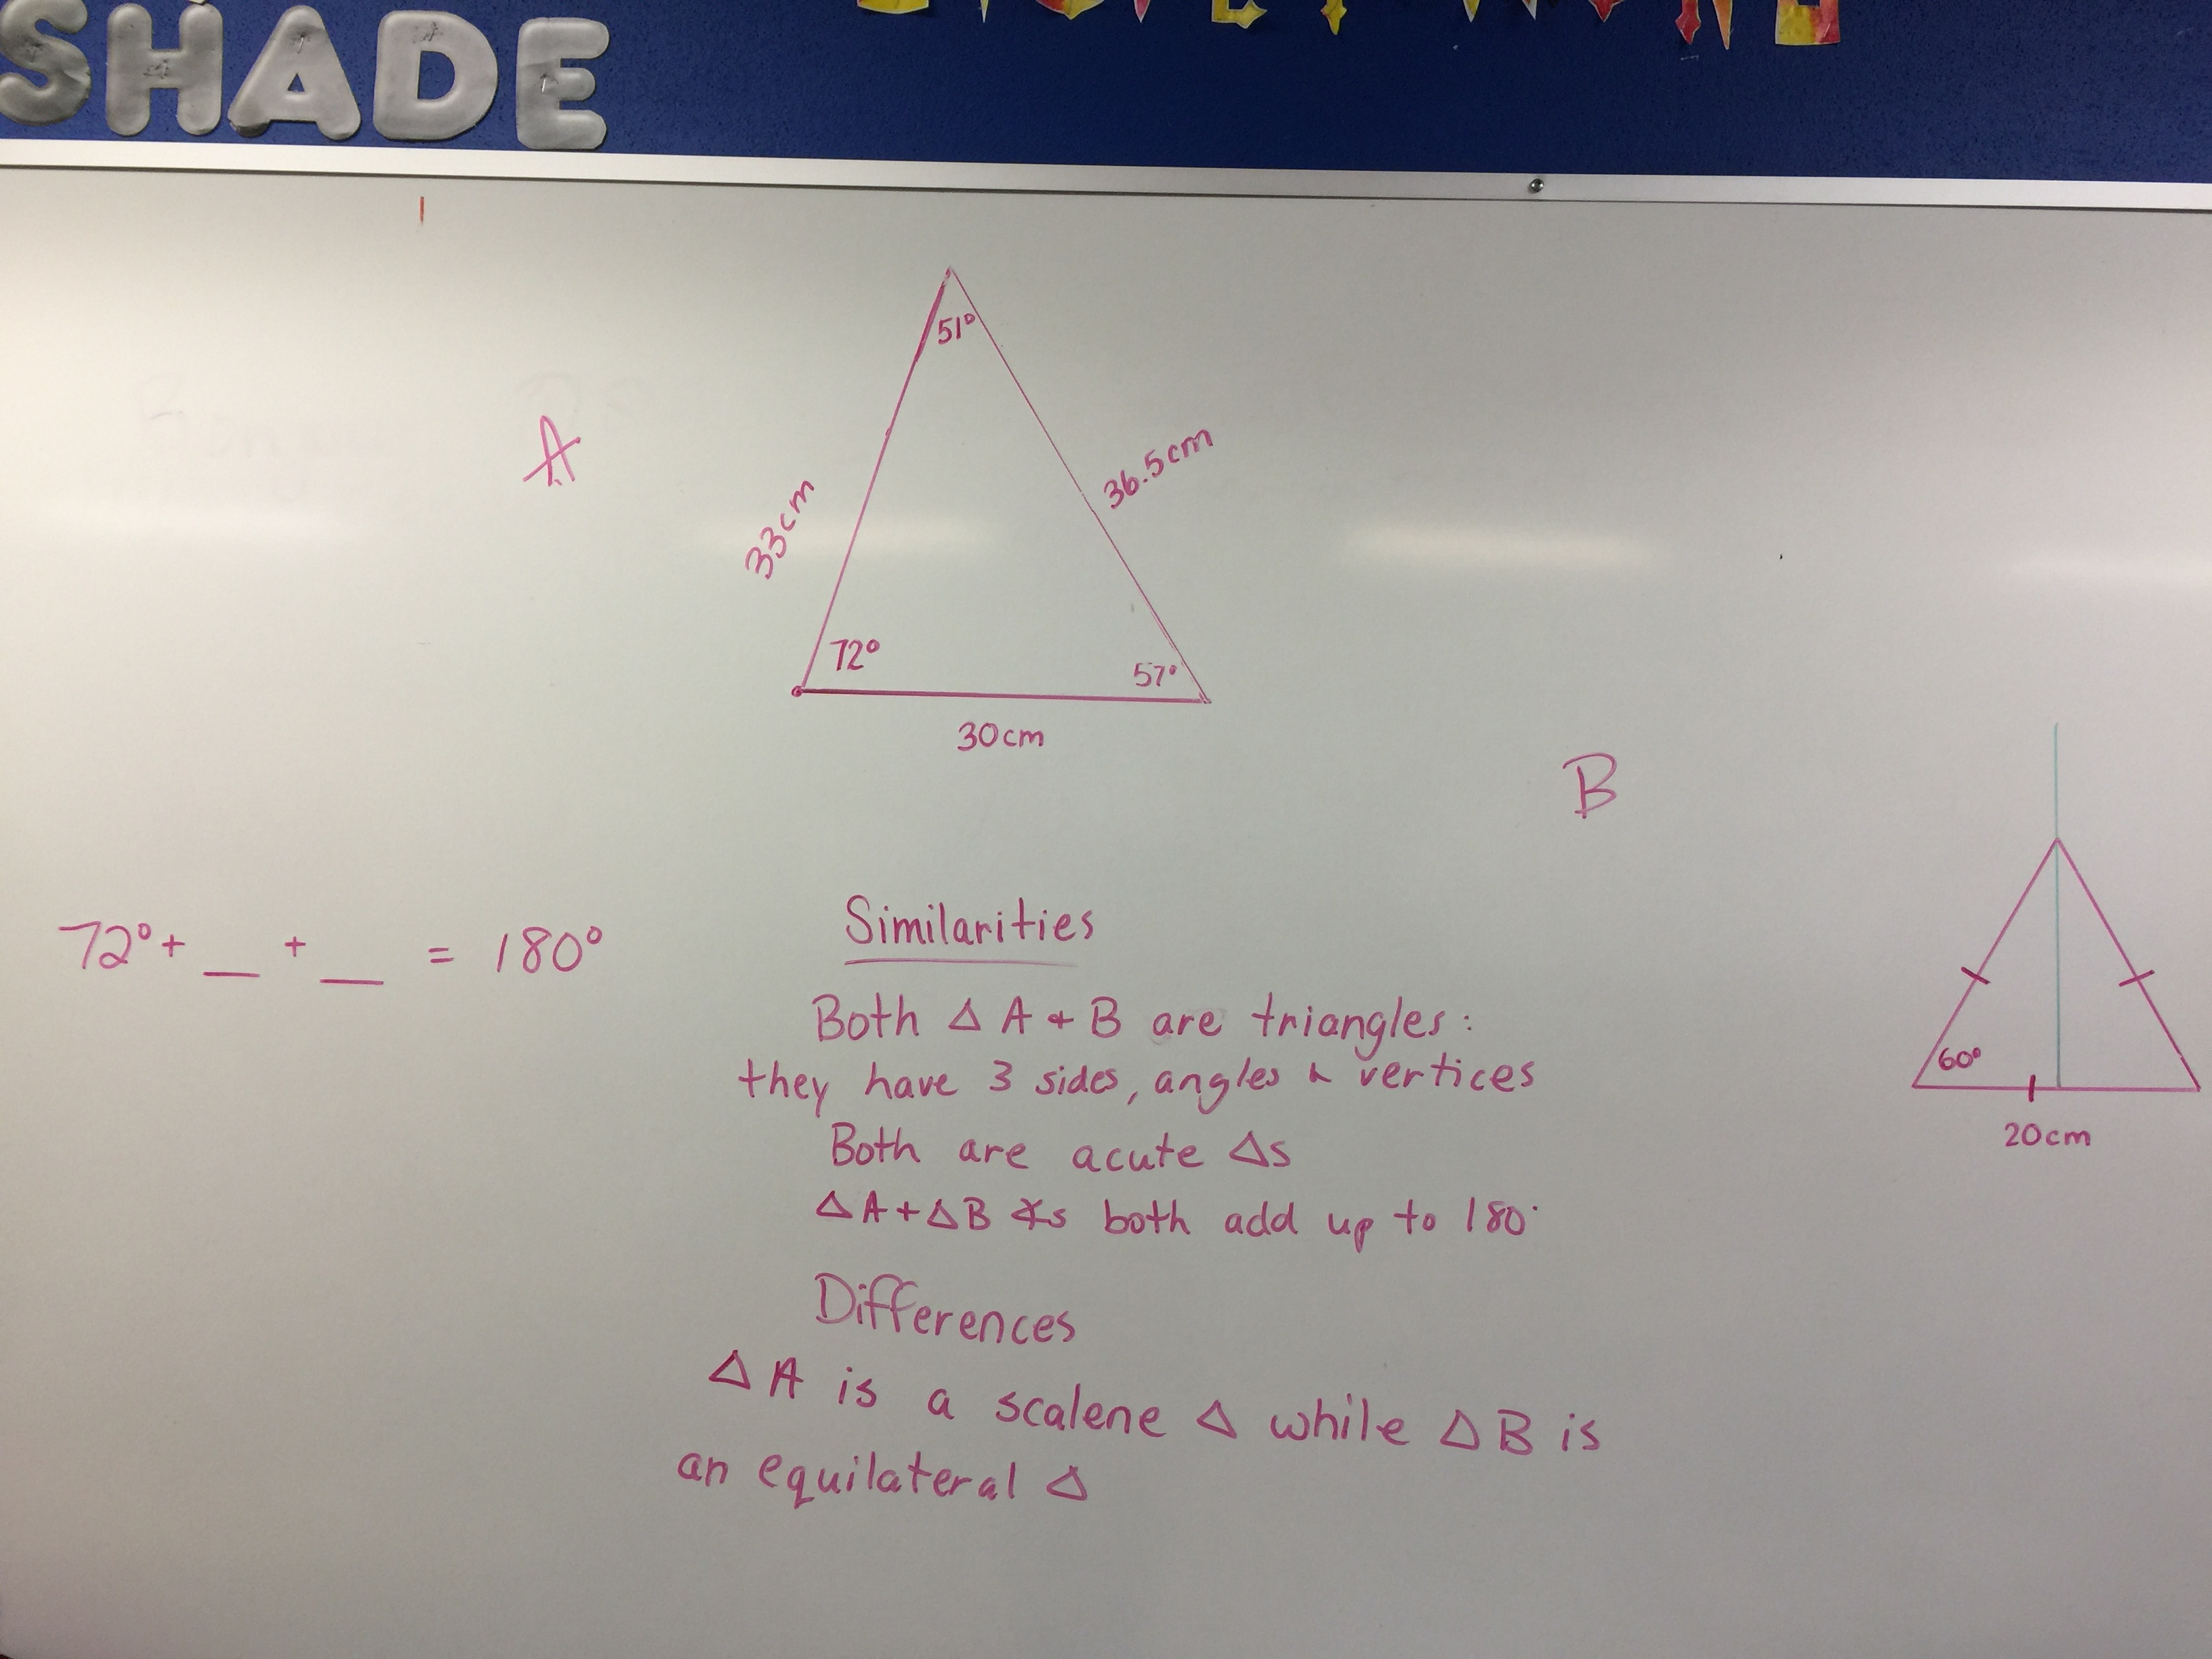 SHADE
A
51°
33cm
36.5cm
72°
57°
30cm
B
72° + __ + __ = 180°
60°
20cm
Similarities
Both △ A + B are triangles:
they have 3 sides, angles & vertices
Both are acute △s
△A + △B ∡s both add up to 180°
Differences
△ A is a scalene △ while △ B is
an equilateral △